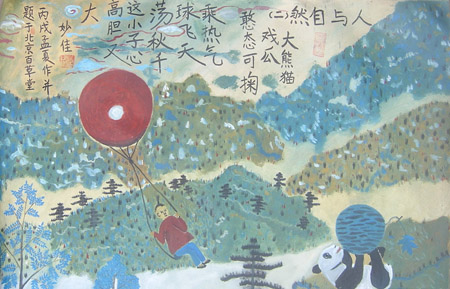 人与自然
(二)大熊猫
戏公
憨态可掬
乘热气
球飞天
荡秋千
这小子心
高胆又
大
妙佳
丙戌孟夏作并
题于北京百草堂